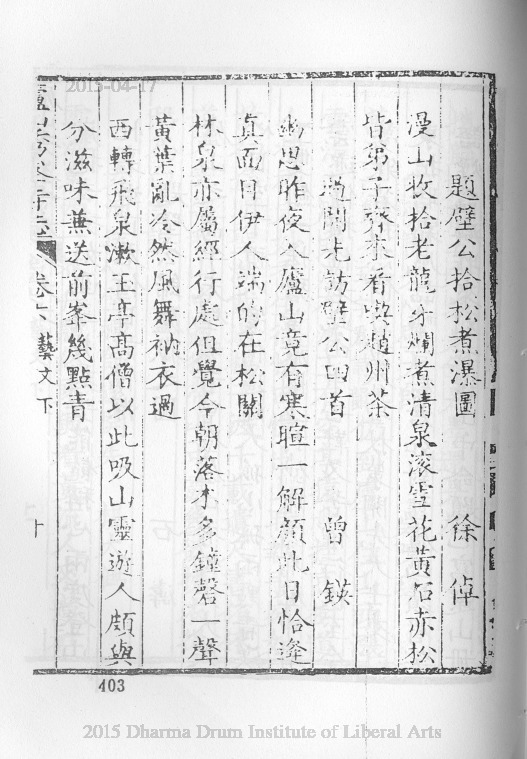 2015-04-17
題壁公拾松煮瀑圖 徐倬
漫山收拾老龍牙爛煮清泉滚雪花黃石赤松
皆弟子齊來看喫趙州茶
過開先訪壁公四首 曾鍈
幽思昨夜入廬山竟有寒暄一解顏此日恰逢
真面目伊人端的在松關
林泉亦屬經行處但覺今朝落木多鐘磬一聲
黃葉亂泠然風舞衲衣過
西轉飛泉漱玉亭高僧以此吸山靈遊人頗與
分滋味兼送前峯幾點青
卷六 藝文下 十
403
2015 Dharma Drum Institute of Liberal Arts